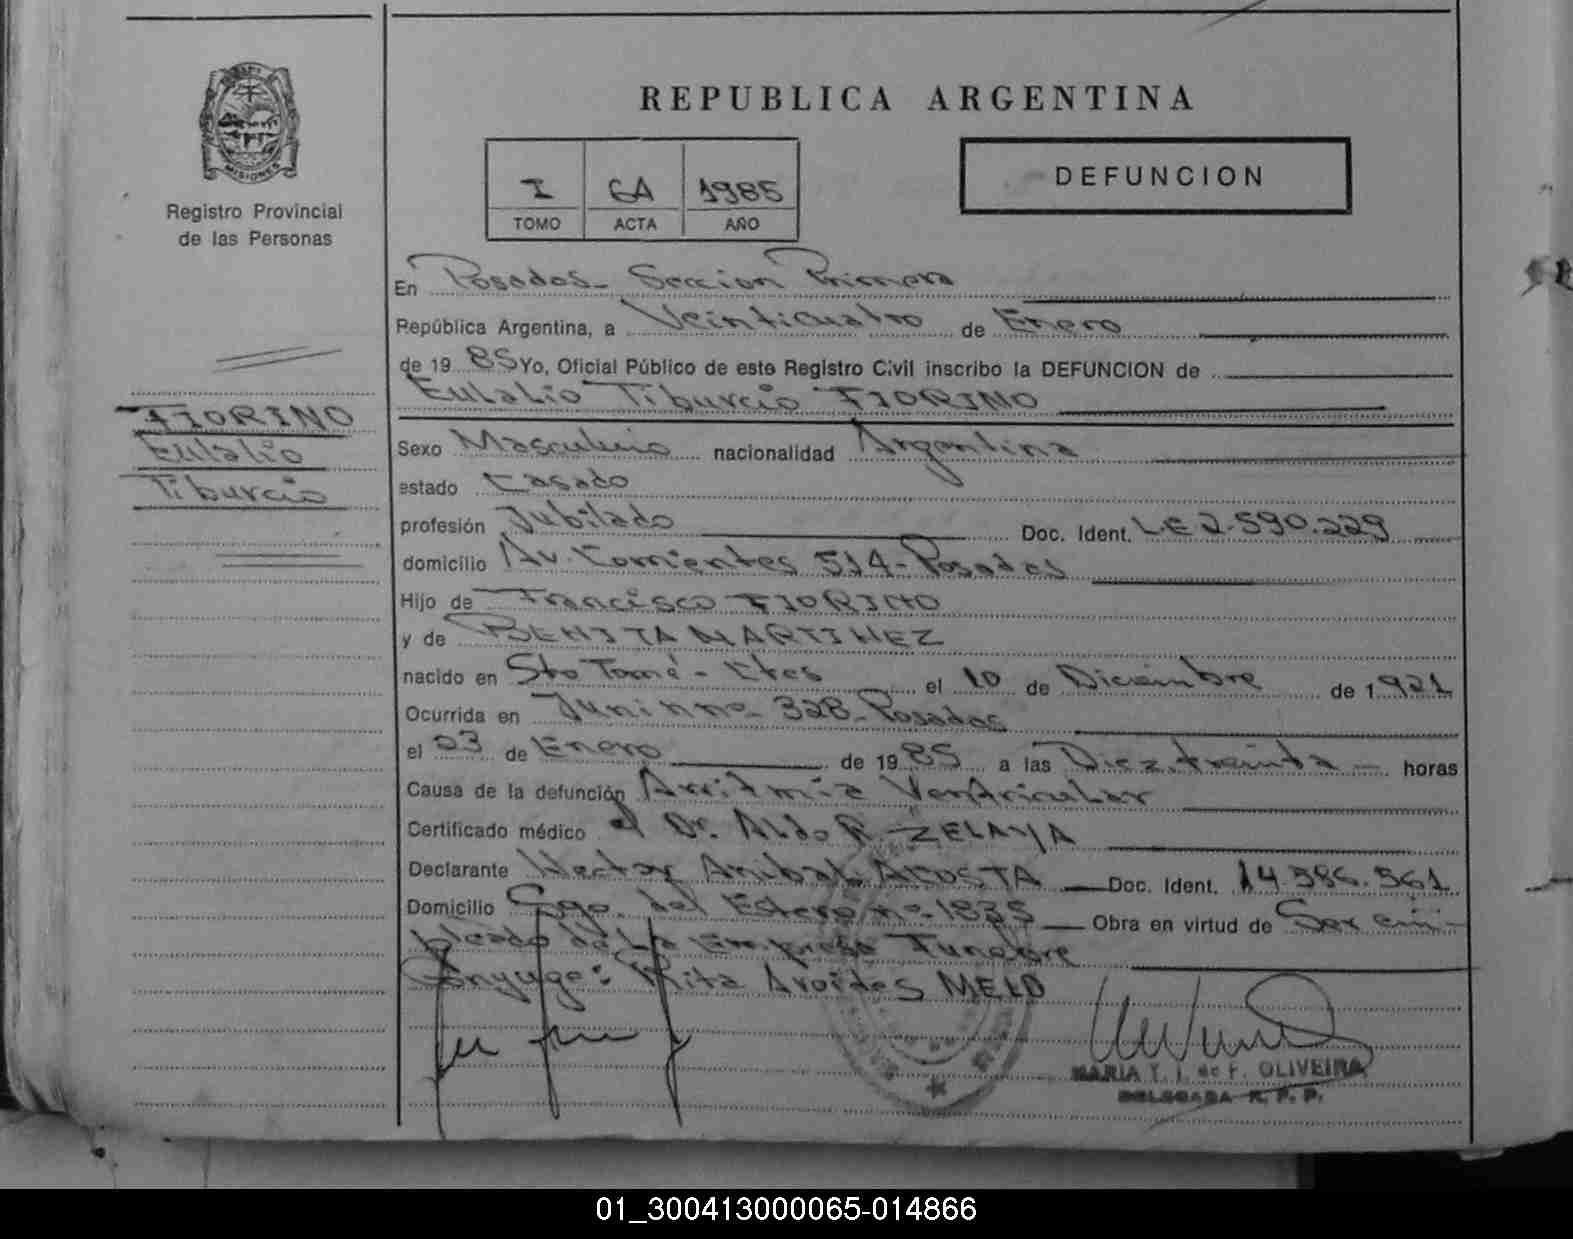 REPUBLICA ARGENTINA
DEFUNCION
MISIONES
Registro Provincial
de las Personas
I 64 1985
TOMO ACTA AÑO
En Posadas - Seccion Primera
República Argentina, a Veinticuatro de Enero
de 19 85 Yo, Oficial Público de este Registro Civil inscribo la DEFUNCION de
Eulalio Tiburcio FIORINO
FIORINO
Eulalio
Tiburcio
Sexo Masculino nacionalidad Argentina
estado Casado
profesión Jubilado Doc. Ident. L.E 2.590.229
domicilio Av. Corrientes 514 - Posadas
Hijo de Francisco FIORINO
y de BENITA MARTINEZ
nacido en Sto Tomé - Ctes el 10 de Diciembre de 1.921
Ocurrida en Junin nº 328 - Posadas
el 23 de Enero de 19 85 a las Diez, treinta horas
Causa de la defunción Arritmia Ventricular
Certificado médico el Dr. Aldo R. ZELAYA
Declarante Hector Anibal ACOSTA Doc. Ident. 14.386.561
Domicilio Sgo. del Estero nº 1835 Obra en virtud de Ser em-
pleado de La Empresa Funebre
Conyuge: Rita MELO
MARIA Y. I. de F. OLIVEIRA
DELEGADA R. P. P.
01_300413000065-014866